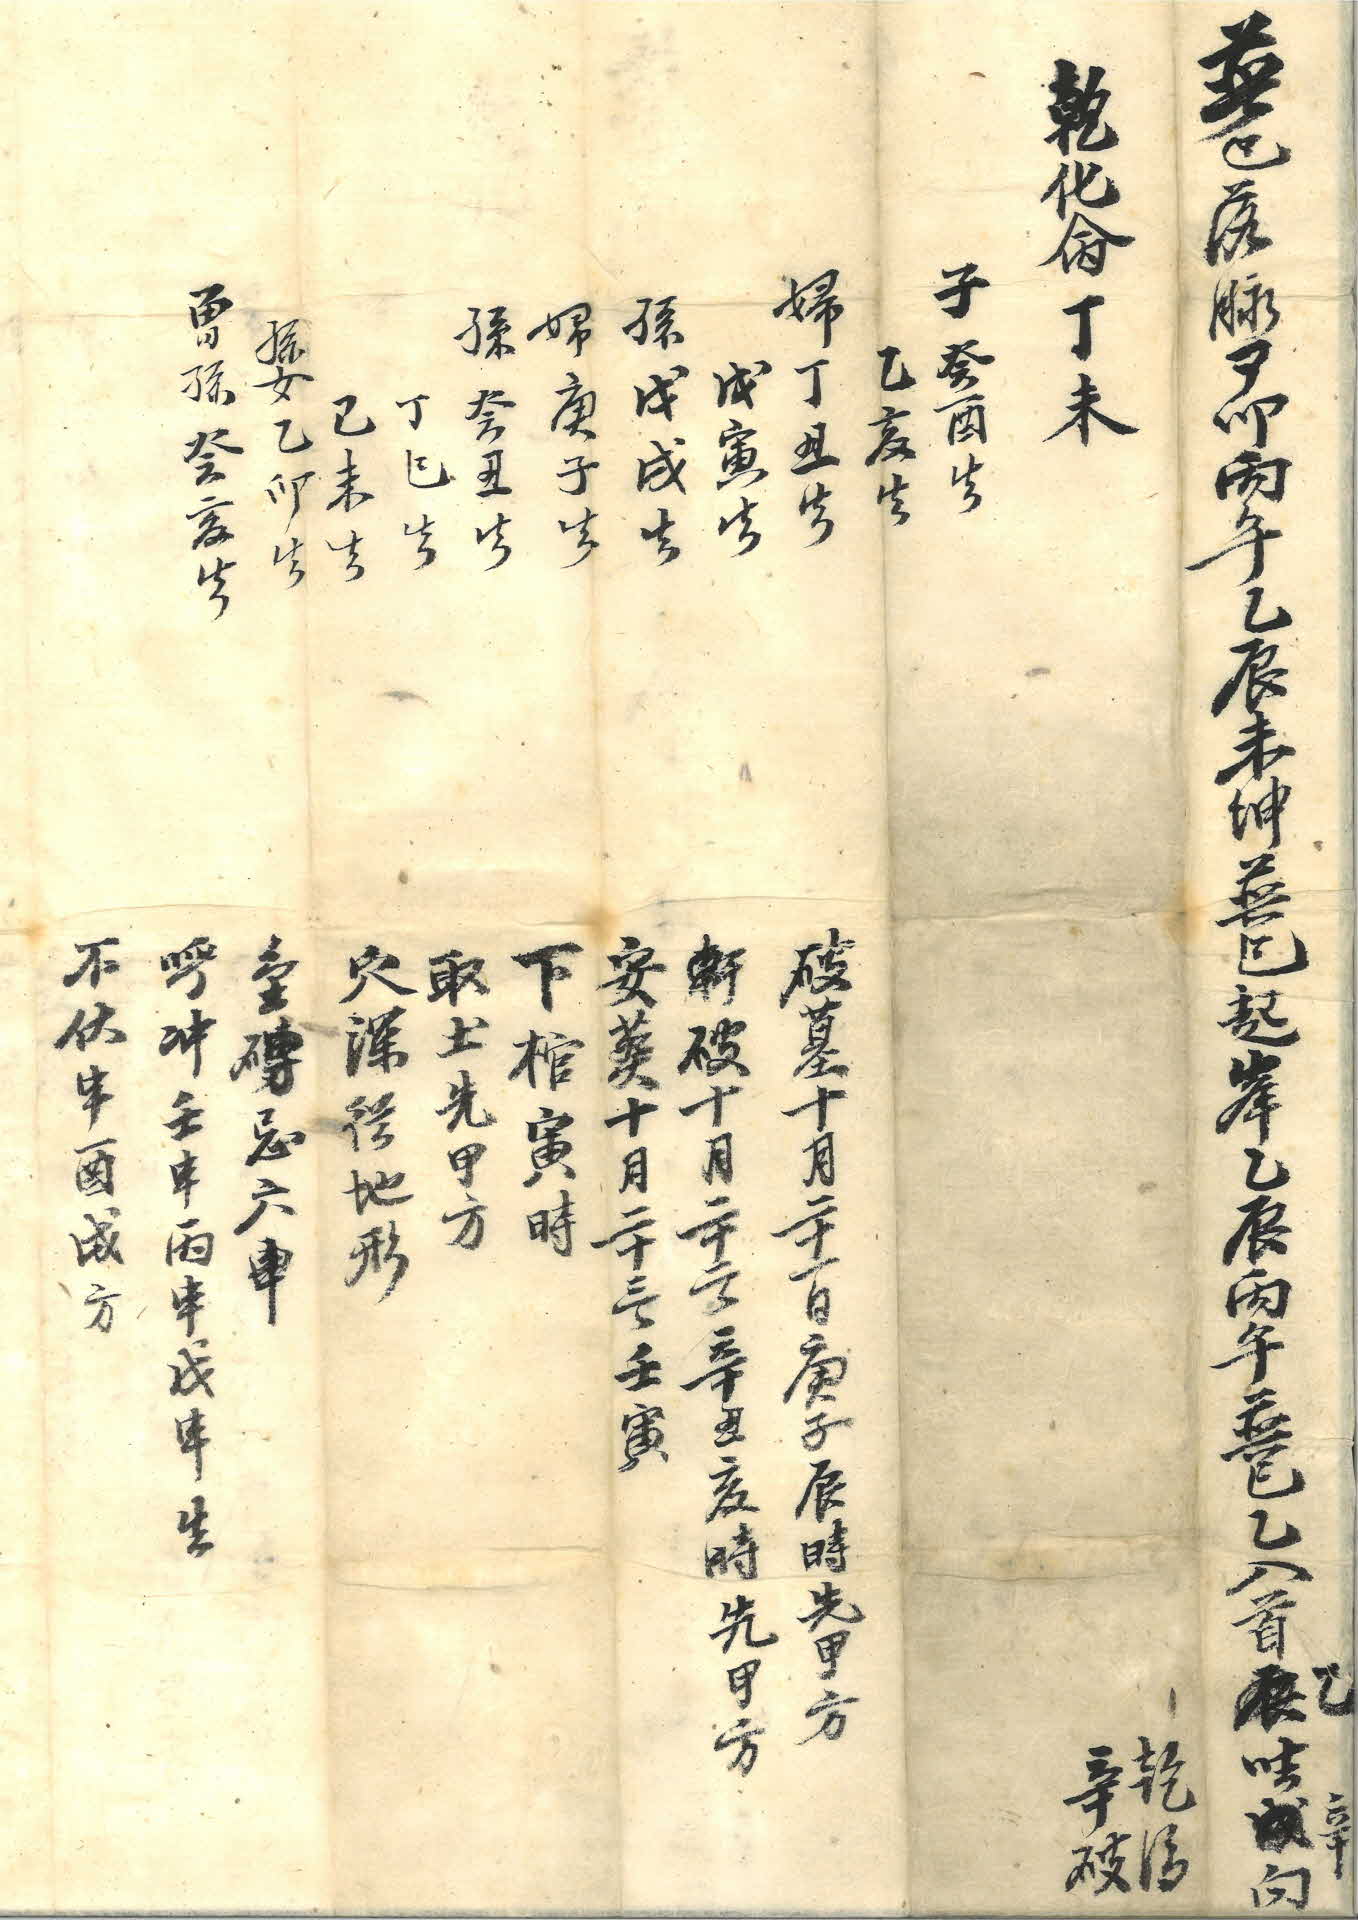 巽巳落脉甲卯丙午乙辰未坤巽巳起峯乙辰丙午巽巳乙入首辰坐戌向
乙
辛
乾得
辛破
乾化命丁未
子癸酉生
乙亥生
婦丁丑生
戊寅生
孫戊戌生
婦庚子生
孫癸丑生
丁巳生
己未生
孫女乙卯生
曾孫癸亥生
破墓十月二十一日庚子辰時先甲方
斬破十月二十二日辛丑亥時先甲方
安葬十月二十三日壬寅
下棺寅時
取土先甲方
穴深從地形
忌六申
呼冲壬申丙申戊申生
不伏申酉戌方